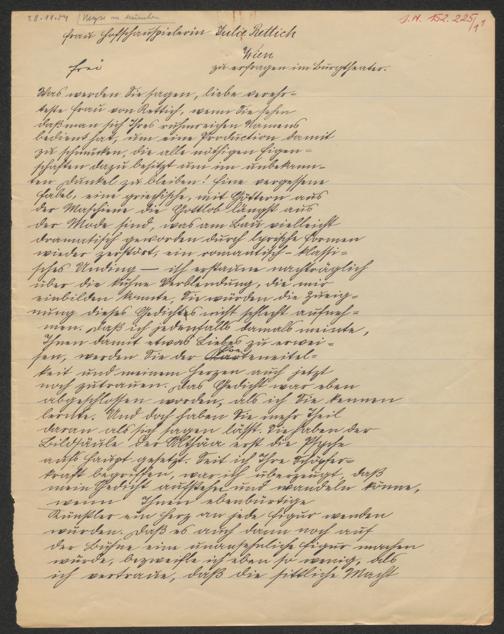 28.11.54
I.N. 152.225/1
Frau Hofschauspielerin Julie Rettich
Wien
frei zu erfragen im Burgtheater.
Was werden Sie sagen, liebe verehr-
teste Frau von Rettich, wenn Sie sehn
daß man sich Ihres ruhmreichen Namens
bedient hat, um eine Production damit
zu schmücken, die alle nöthigen Eigen-
schaften dazu besitzt um im unbekann-
ten Dunkel zu bleiben! Eine vergessene
Fabel, eine griechische, mit Göttern aus
der Maschine die Gottlob längst aus
der Mode sind, was am Bau vielleicht
dramatisch geworden durch lyrische Formen
wieder zerstört, ein romantisch-klassi-
sches Unding — ich erstaune nachträglich
über die kühne Verblendung, die mir
einbilden konnte, Sie würden die Zueig-
nung dieses Gedichtes nicht schlecht aufneh-
men. Daß ich jedenfalls damals meinte,
Ihnen damit etwas Liebes zu erwei-
sen, werden Sie der
keit und meinem Herzen auch jetzt
noch zutrauen. Das Gedicht war eben
abgeschlossen worden, als ich Sie kennen
lernte. Und doch haben Sie mehr Theil
daran als sich sagen läßt. Sie haben der
Bildsäule der Althäa erst die Psyche
aufs Haupt gesetzt. Seit ich Ihre Schöpfer-
kraft begriffen, war ich überzeugt, daß
mein Gedicht aufstehe und wandeln könne,
wenn Ihnen ebenbürtige
Künstler ein Herz an jede Figur wenden
würden. Daß es auch dann noch auf
der Bühne eine unansehnliche Figur machen
würde, bezweifle ich eben so wenig, als
ich vertraue, daß die sittliche Macht